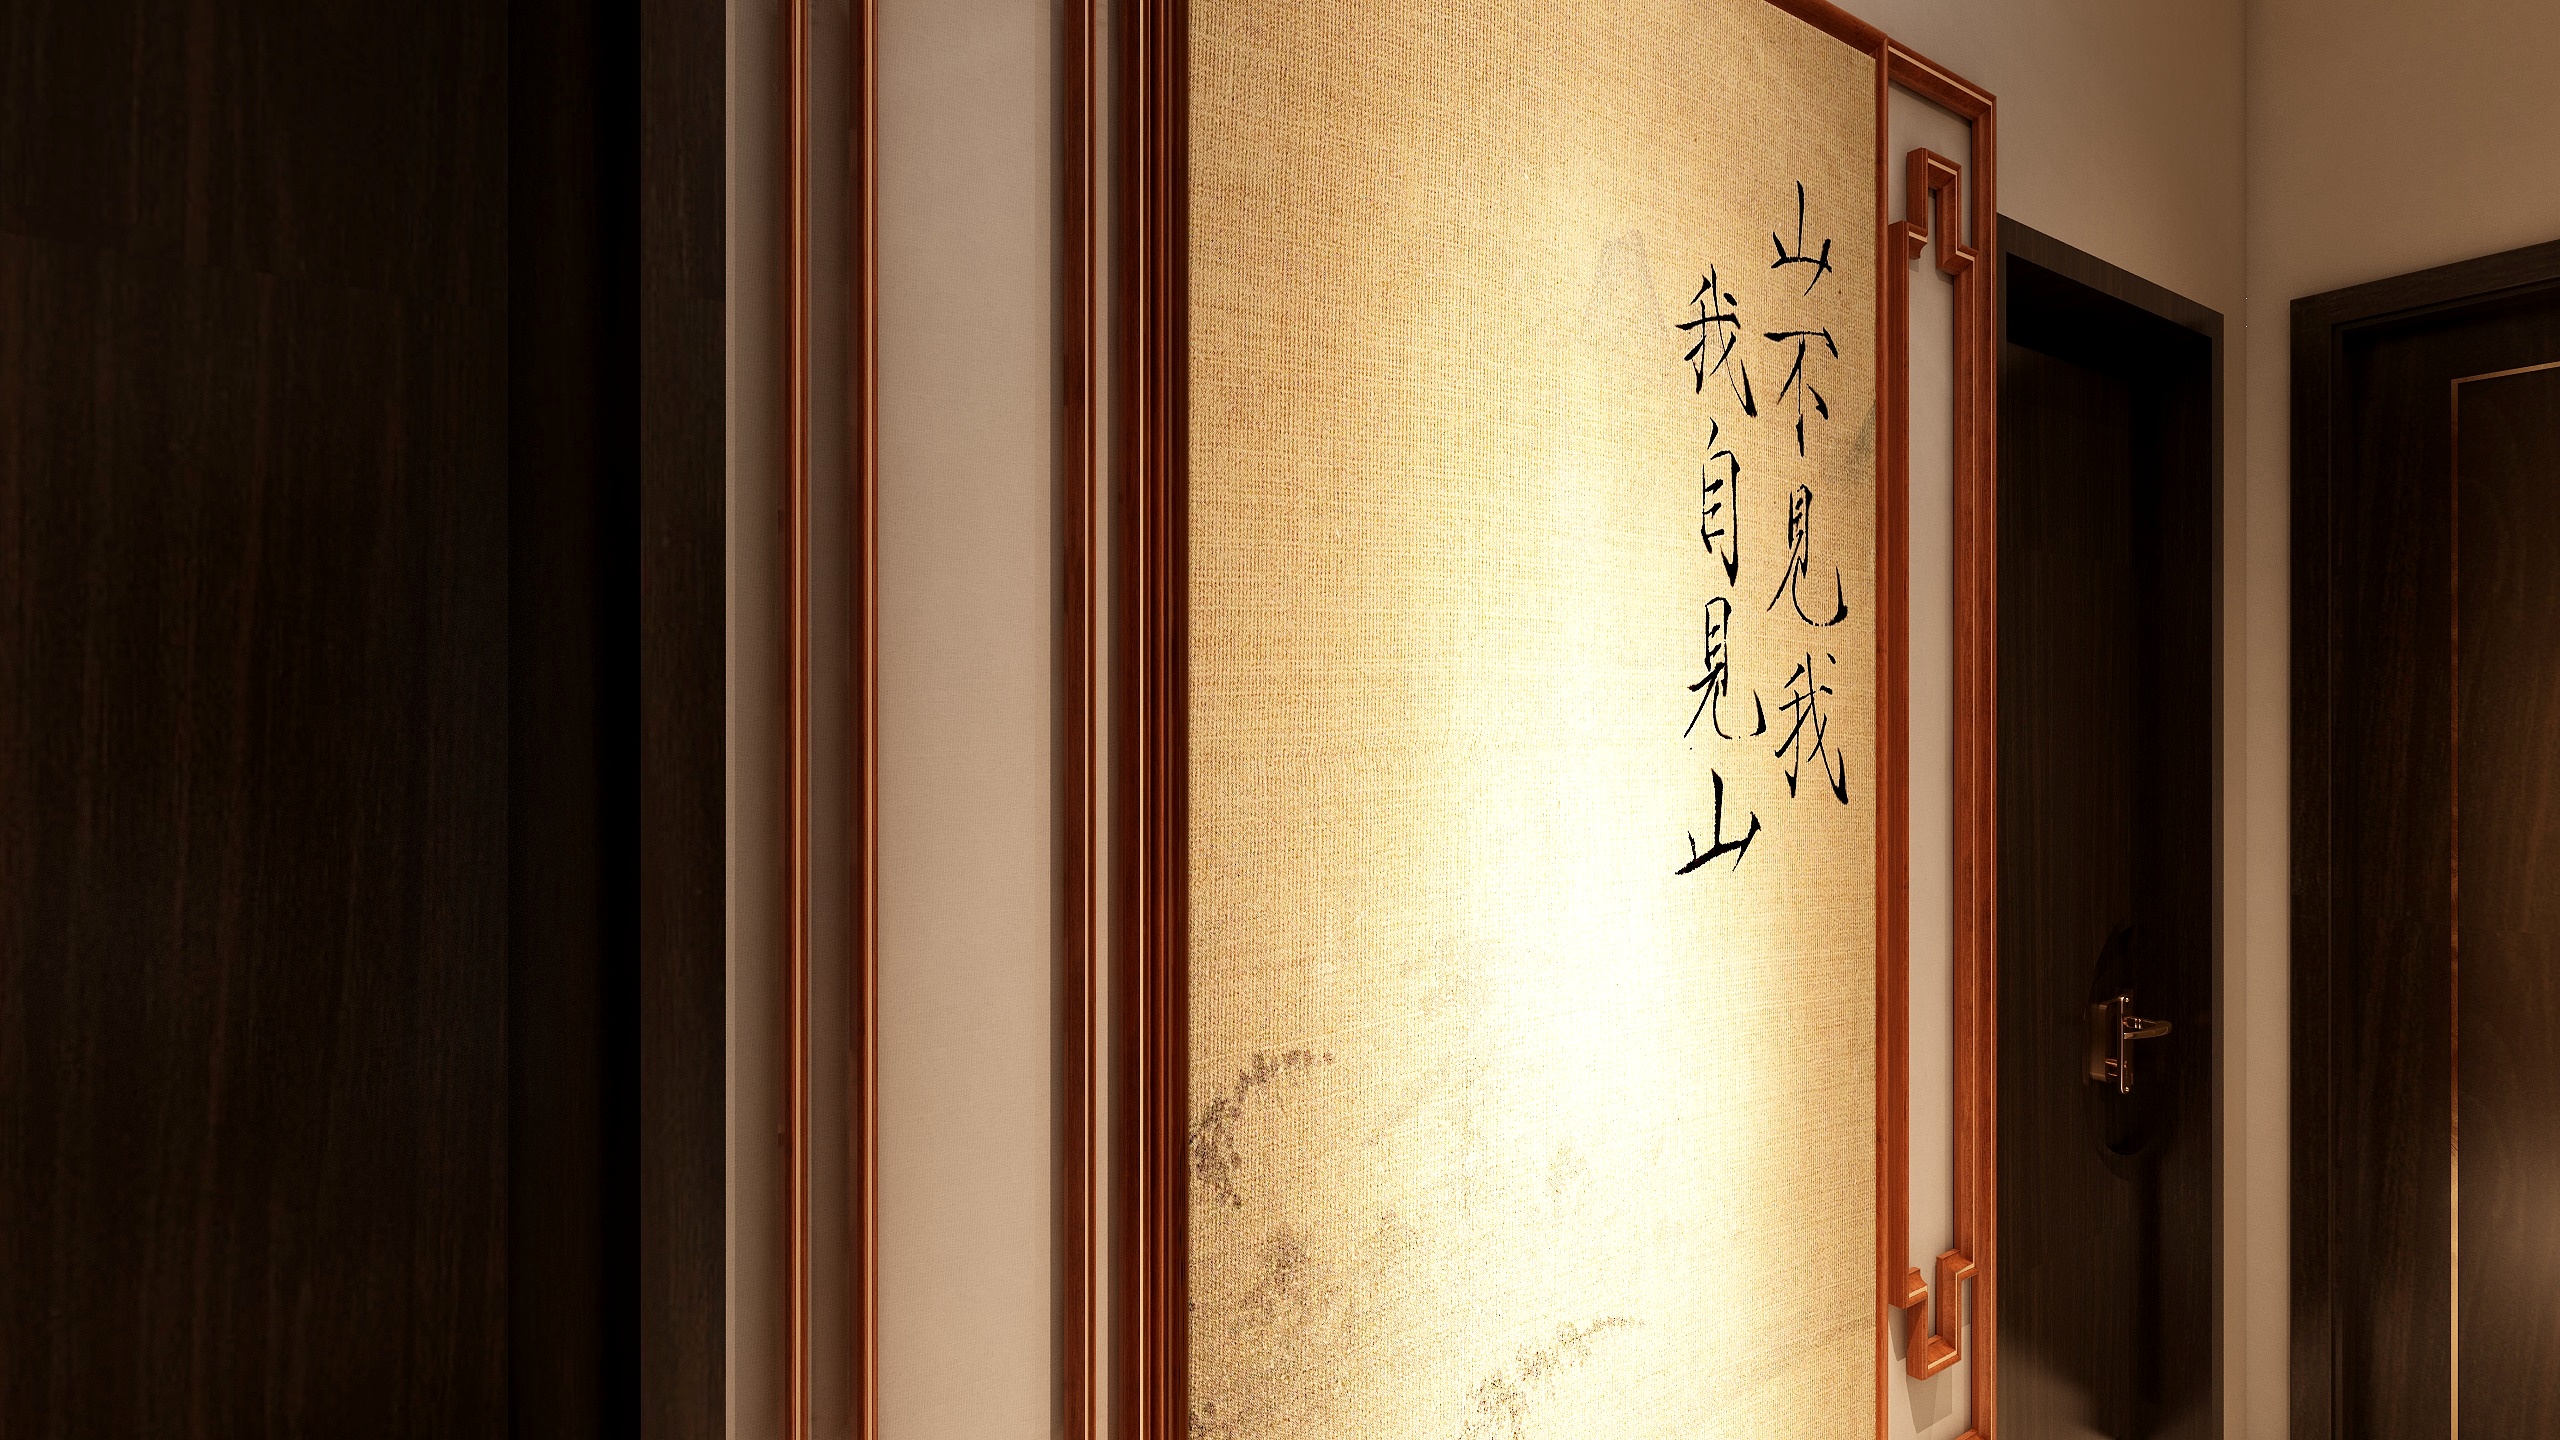 山不見我
我自見山